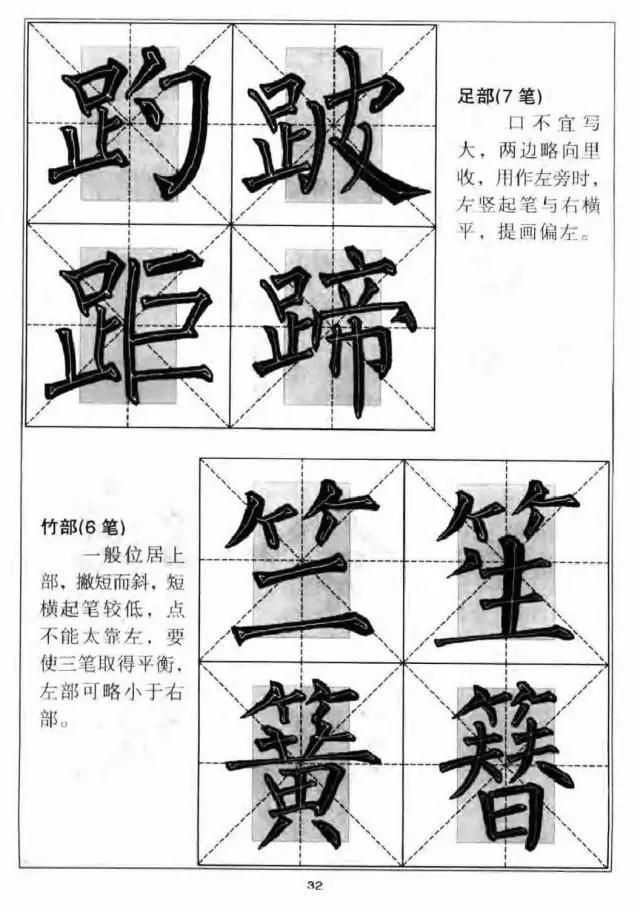 趵 跛
距 蹄
足部(7 笔)
口不宜写
大，两边略向里
收，用作左旁时，
左竖起笔与右横
平，提画偏左。
竹部(6 笔)
一般位居上
部，撇短而斜，短
横起笔较低，点
不能太靠左，要
使三笔取得平衡，
左部可略小于右
部。
竺 笙
簧 簪
32